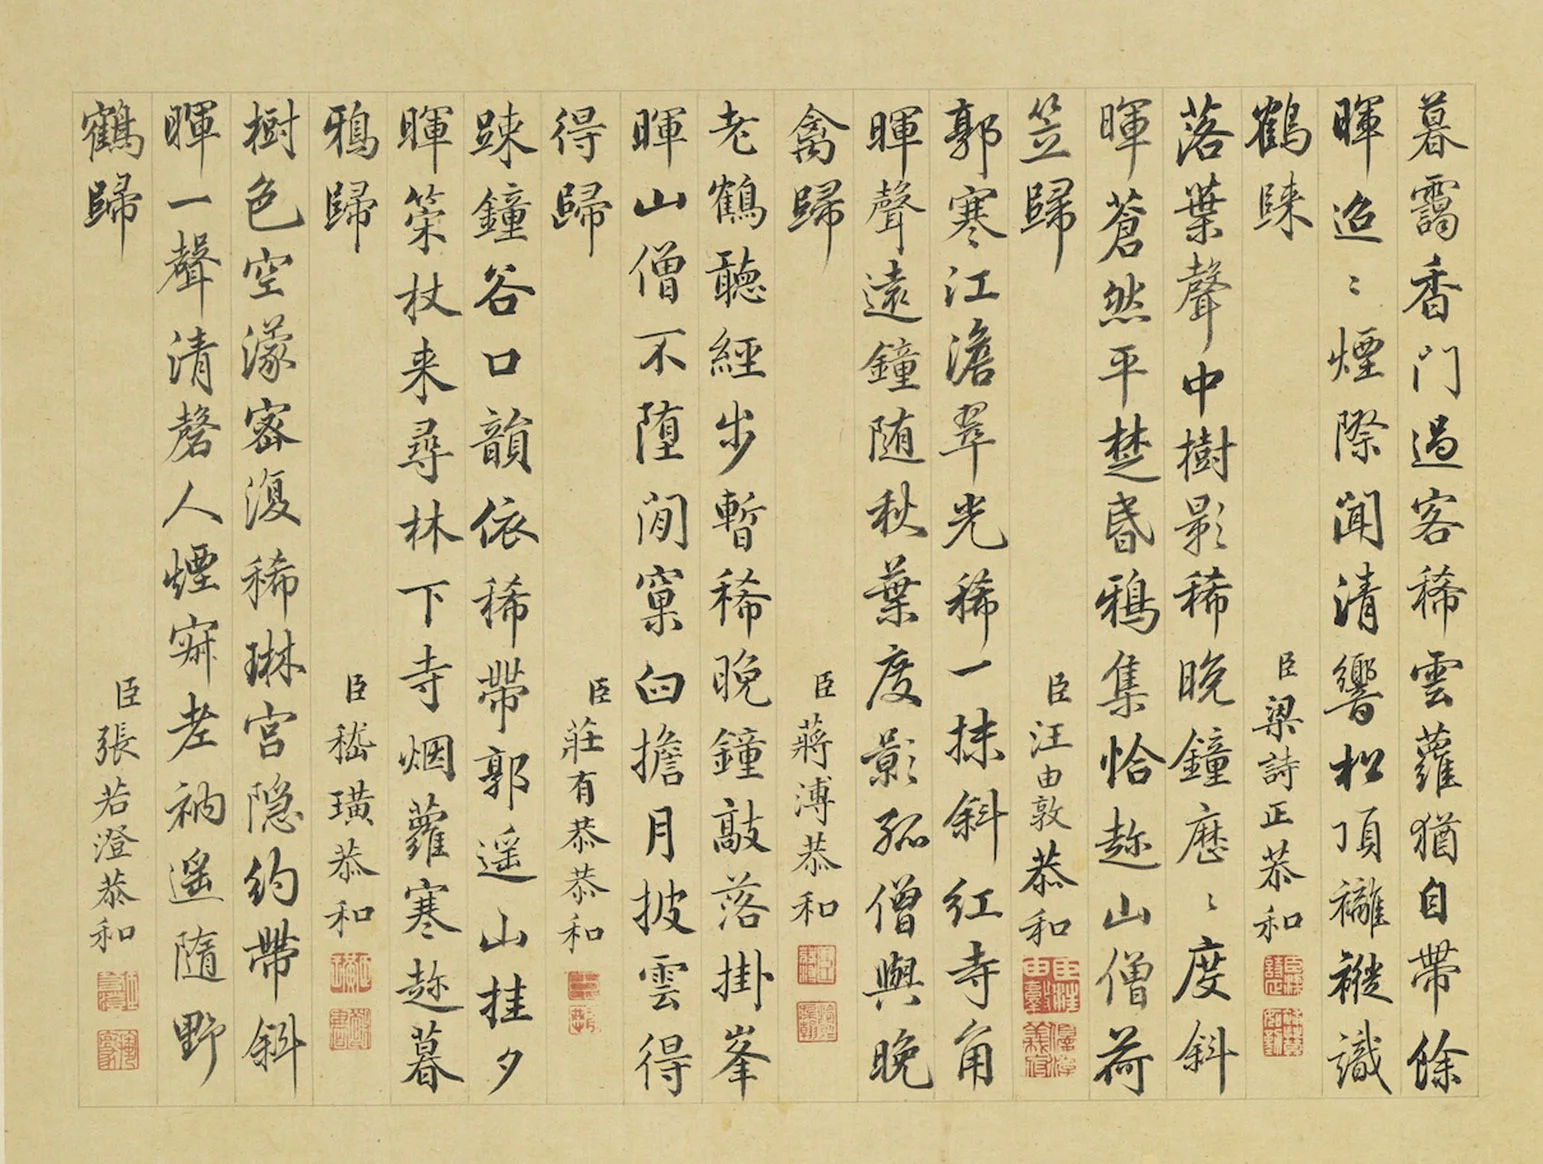 暮靄香門過客稀雲蘿猶自帶餘
暉迢〻煙際聞清響松頂褵褷識
鶴歸
臣梁詩正恭和
落葉聲中樹影稀晚鐘歷〻度斜
暉蒼然平楚昏鴉集恰趂山僧荷
笠歸
臣汪由敦恭和
郭寒江澹翠光稀一抹斜紅寺角
暉聲遠鐘随秋葉度影孤僧與晚
禽歸
臣蔣溥恭和
老鶴聽經步暫稀晚鐘敲落掛峯
暉山僧不墮閒窠臼擔月披雲得
得歸
臣莊有恭恭和
踈鐘谷口韻依稀帶郭遥山挂夕
暉策杖来尋林下寺烟蘿寒趂暮
鴉歸
臣嵇璜恭和
樹色空濛密復稀琳宮隐約帶斜
暉一聲清磬人煙寂老衲遥隨野
鶴歸
臣張若澄恭和